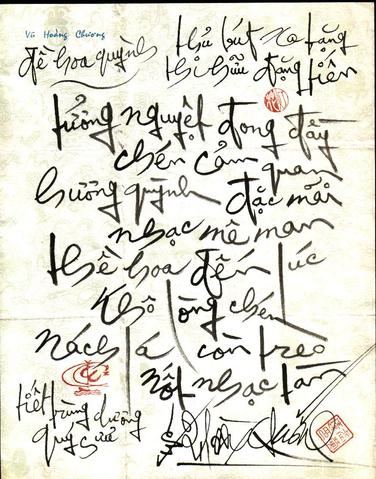 Vũ Hoàng Chương
đề hoa quỳnh
thủ bút xa tặng
thi hữu đặng tiến
tưởng nguyệt đong đầy
chén cảm quan
hưởng quỳnh đặc mãi
nhạc mê man
thề hoa đến lúc
khô lòng chén
nách lá còn treo
nốt nhạc tàn
tiết trùng dương
quý sửu